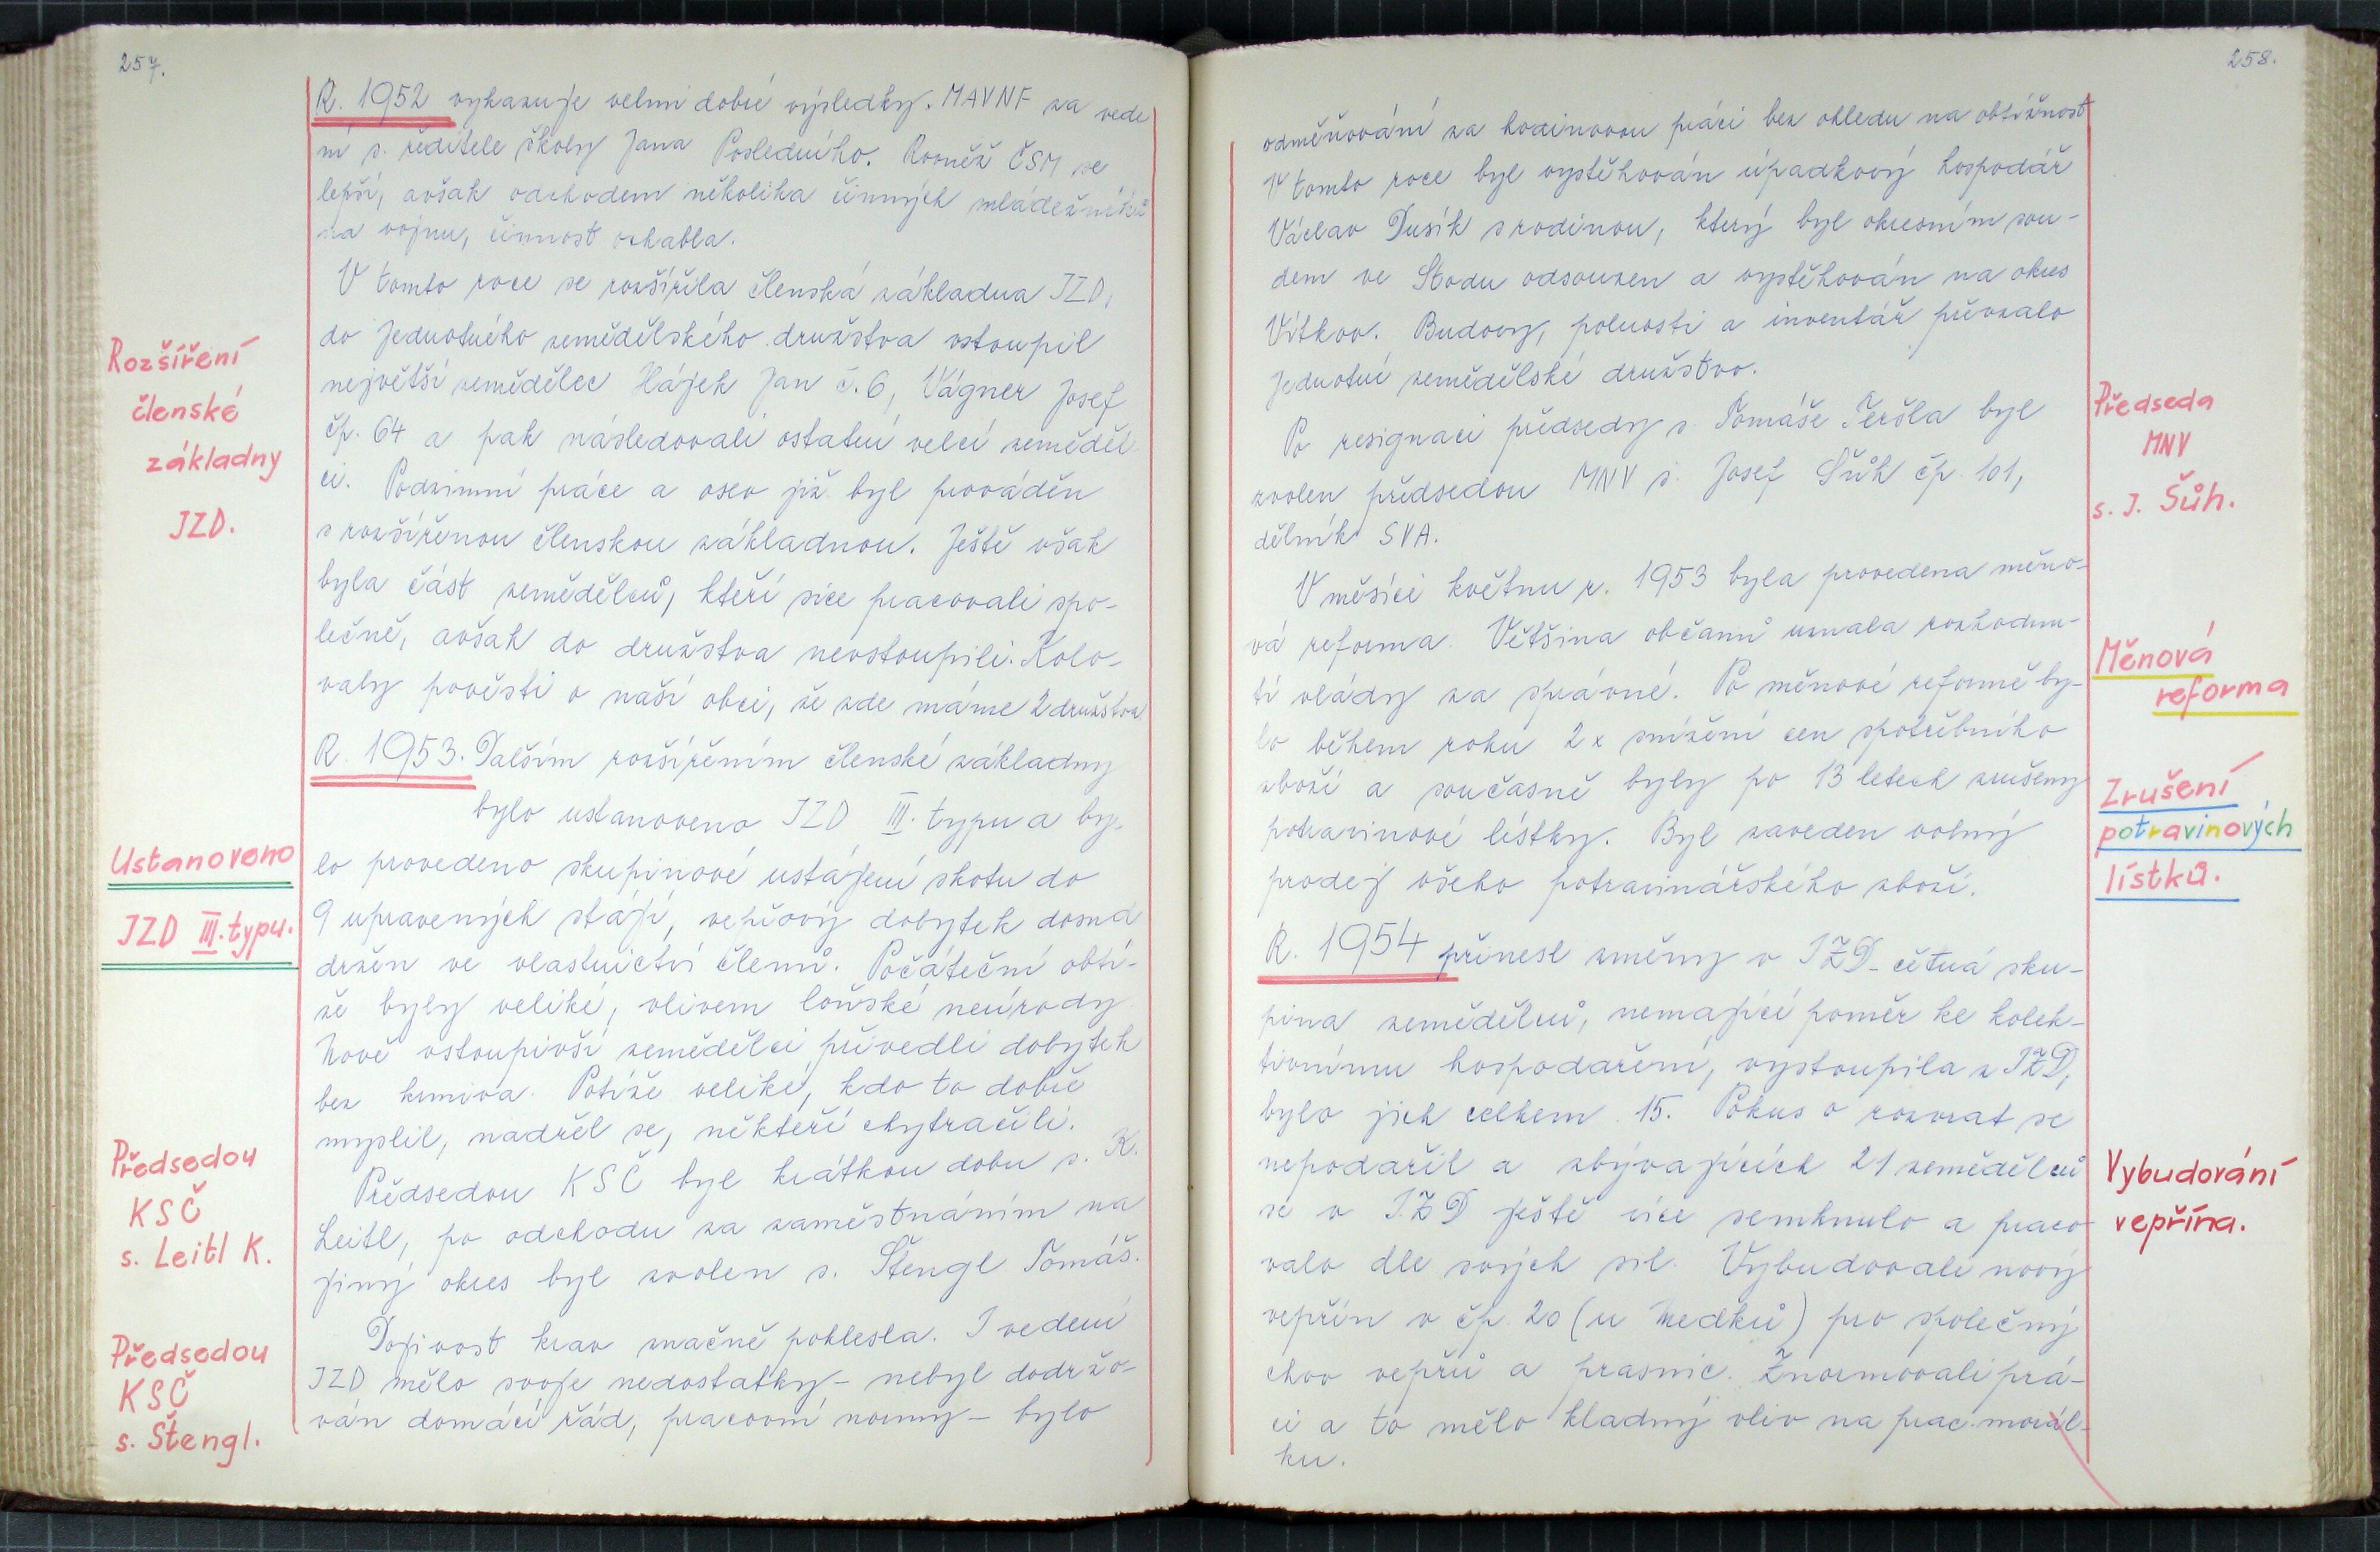 257.
R. 1952 vykazuje velmi dobré výsledky. MAVNF za vede
ní s. ředitele školy Jana Posledního. Rovněž ČSM se
lepší, avšak odchodem několika činných mládežníků
na vojnu, činnost ochabla.
V tomto roce se rozšířila členská základna JZD,
do Jednotného zemědělského družstva vstoupil
Rozšíření
největší zemědělec Hájek Jan č. 6, Vágner Josef
členské
čp. 64 a pak následovali ostatní velcí zeměděl
základny
ci. Podzimní práce a osev již byl prováděn
JZD.
s rozšířenou členskou základnou. Ještě však
byla část zemědělců, kteří sice pracovali spo-
lečně, avšak do družstva nevstoupili. Kolo-
valy pověsti o naší obci, že zde máme 2 družstva
R. 1953. Dalším rozšířením členské základny
bylo ustanoveno JZD III. typu a by-
Ustanoveno
lo provedeno skupinové ustájení skotu do
JZD III. typu.
9 upravených stájí, vepřový dobytek dosud
držen ve vlastnictví členů. Počáteční obtí-
že byly veliké, vlivem loňské neúrody
Nově vstoupivší zemědělci přivedli dobytek
bez krmiva. Potíže veliké, kdo to dobře
myslil, nadřel se, někteří chytračili.
Předsedou
KSČ
s. Leitl K.
Předsedou KSČ byl krátkou dobu s. K.
Leitl, po odchodu za zaměstnáním na
jiný okres byl zvolen s. Štengl Tomáš.
Předsedou
KSČ
s. Štengl.
Dojivost krav značně poklesla. I vedení
JZD mělo svoje nedostatky - nebyl dodržo-
ván domácí řád, pracovní normy - bylo
258.
odměňování za hodinovou práci bez ohledu na obtížnost
V tomto roce byl vystěhován úpadkový hospodář
Václav Dusík s rodinou, který byl okresním sou-
dem ve Stodu odsouzen a vystěhován na okres
Vítkov. Budovy, polnosti a inventář převzalo
Jednotné zemědělské družstvo.
Předseda
MNV
s. J. Šůh.
Po resignaci předsedy s. Tomáše Teršla byl
zvolen předsedou MNV s. Josef Šůh čp. 101,
dělník SVA.
V měsíci květnu r. 1953 byla provedena měno-
vá reforma. Většina občanů uznala rozhodnu-
Měnová
reforma
tí vlády za správné. Po měnové reformě by-
lo během roku 2x snížení cen spotřebního
Zrušení
potravinových
lístků.
zboží a současně byly po 13 letech zrušeny
potravinové lístky. Byl zaveden volný
prodej všeho potravinářského zboží.
R. 1954 přinesl změny v JZD - četná sku-
pina zemědělců, nemající poměr ke kolek-
tivnímu hospodaření, vystoupila z JZD,
bylo jich celkem 15. Pokus o rozvrat se
nepodařil a zbývajících 21 zemědělců
Vybudování
vepřína.
se v JZD ještě více semknulo a praco
valo dle svých sil. Vybudovali nový
vepřín v čp. 20 (u Medků) pro společný
chov vepřů a prasnic. Znormovali prá-
ci a to mělo kladný vliv na prac. morál-
ku.